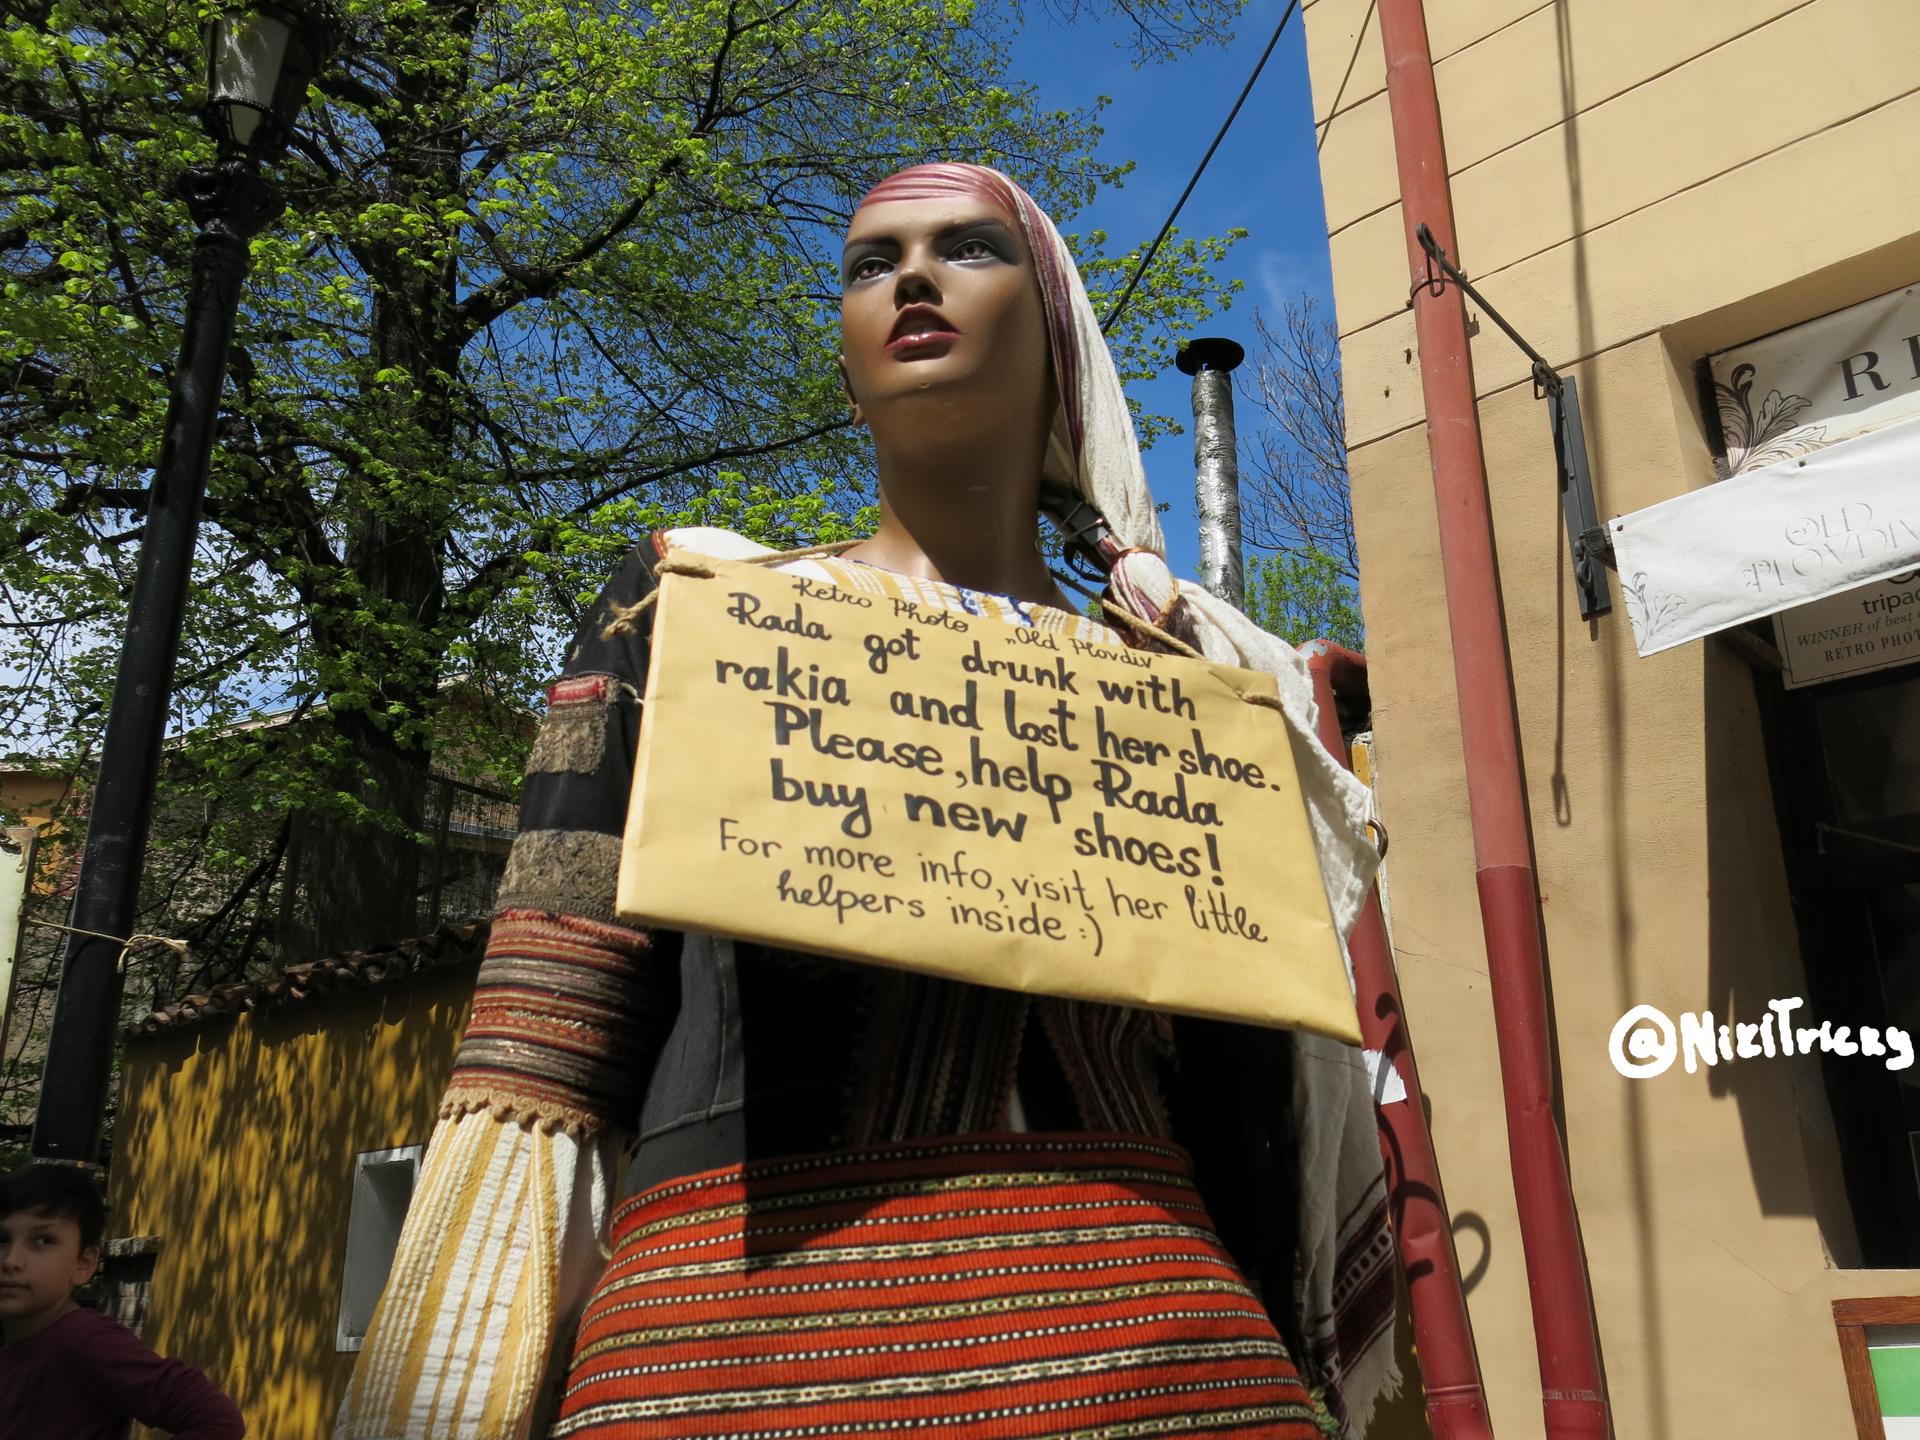 Retro Photo „Old Plovdiv"
Rada got drunk with
rakia and lost her shoe.
Please, help Rada
buy new shoes!
For more info, visit her little
helpers inside :)
OLD
PLOVDIV
WINNER of best
RETRO PHOT
@NikiTricky